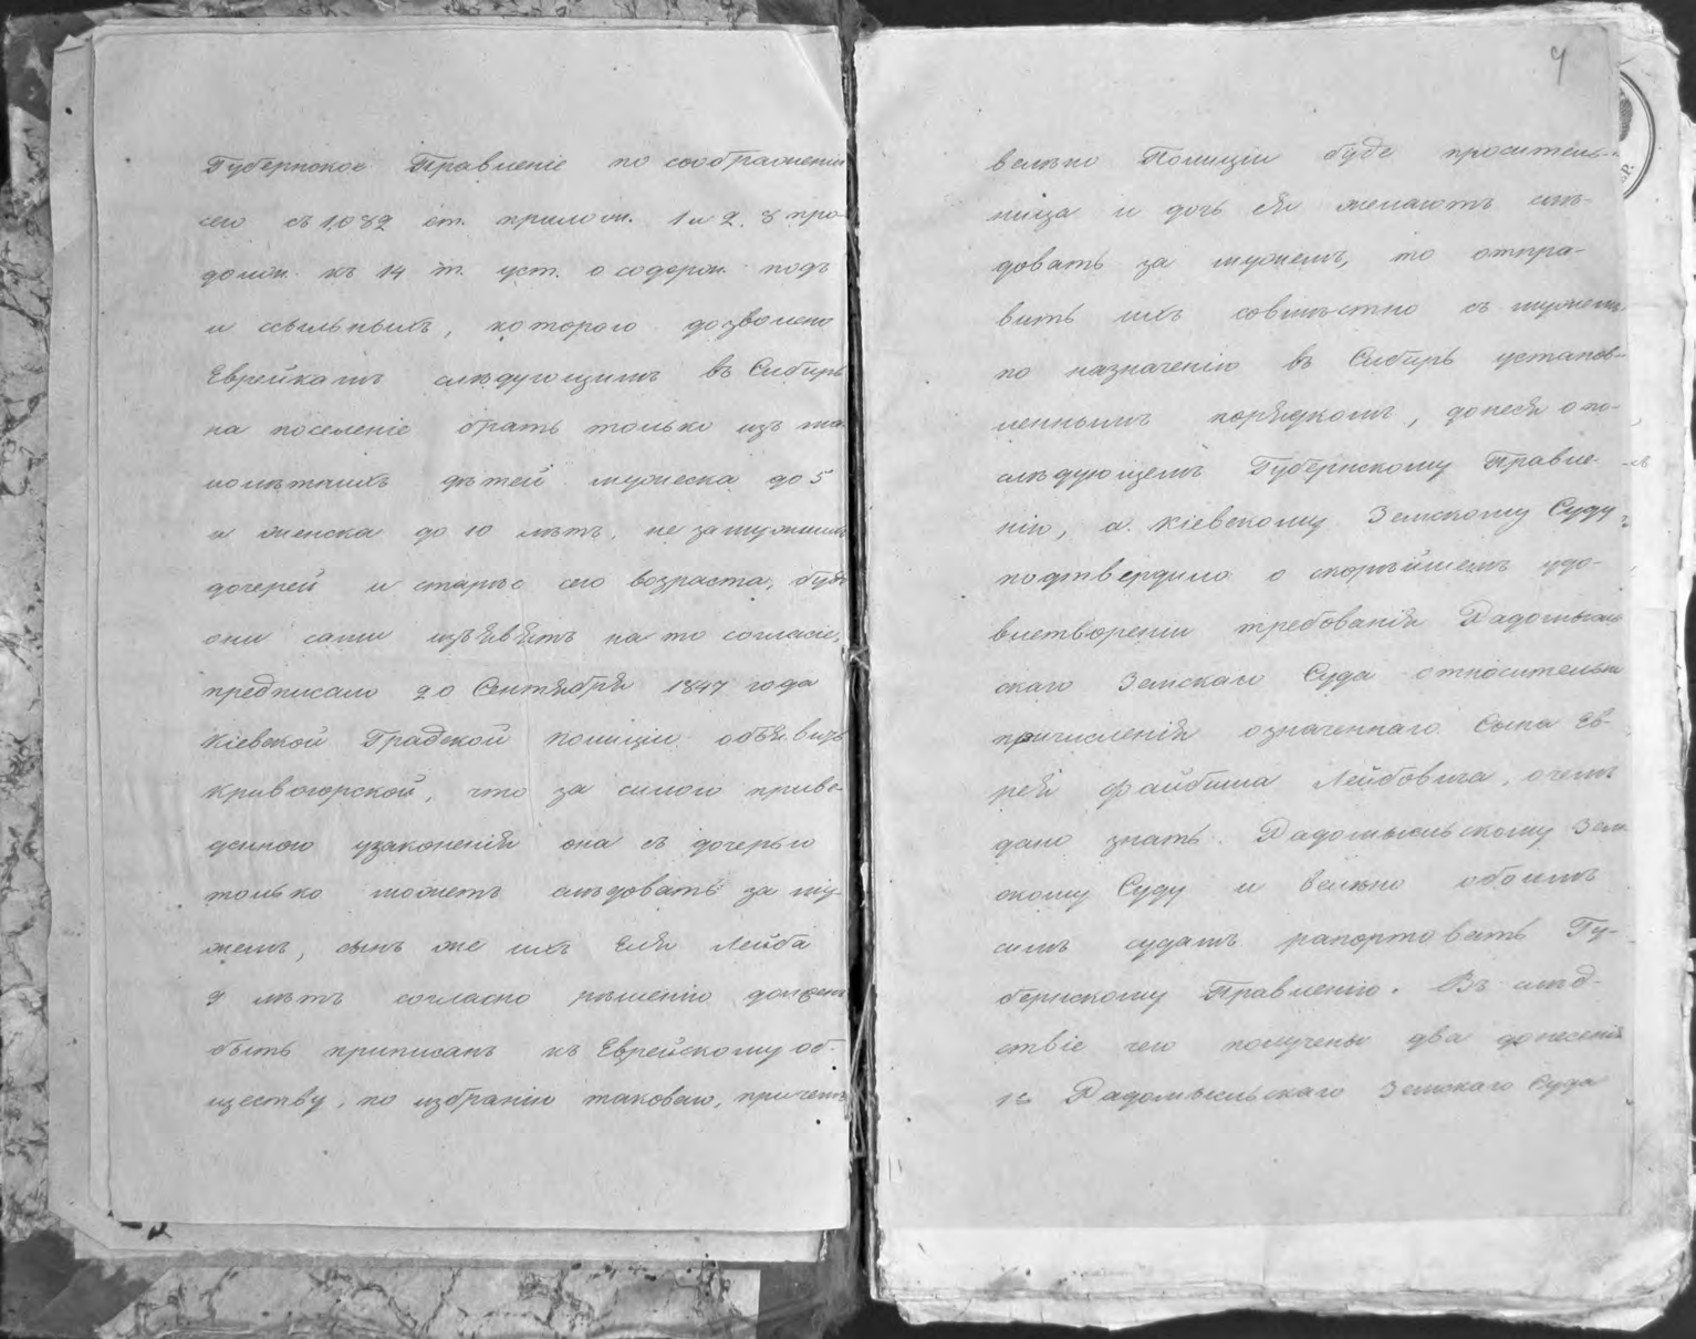 Губернское Правленіе по соображеніи
сего съ 1,032 ст. прилож. 1 и 2. 8 про-
долж. къ 14 т. уст. о содерж. подъ
и ссыльныхъ, которого дозволено
Еврейкамъ слѣдующимъ въ Сибирь
на поселеніе брать только изъ ма-
лолѣтнихъ дѣтей мужеска до 5
и женска до 10 лѣтъ, не замужнихъ
дочерей и старѣе сего возраста, буде
они сами изъявятъ на то согласіе,
предписало 20 Сентября 1847 года
Кіевской Градской Полиціи объявить
Кривогорской, что за силою приве-
денного узаконенія она съ дочерью
только можетъ слѣдовать за му-
жемъ, сынъ же ихъ Еля Лейба
9 лѣтъ согласно рѣшенію долженъ
быть приписанъ къ Еврейскому об-
ществу, по избранію таковаго, причемъ
9
велѣно Полиціи буде проситель-
ница и дочь ея желаютъ слѣ-
довать за мужемъ, то отпра-
вить ихъ совмѣстно съ мужемъ
по назначенію въ Сибирь установ-
леннымъ порядкомъ, донеся о по-
слѣдующемъ Губернскому Правле-
нію, а Кіевскому Земскому Суду
подтвердило о скорѣйшемъ удо-
влетвореніи требованія Радомысль-
скаго Земскаго Суда относительно
причисленія означеннаго Сына Ев-
рея Файбиша Лейбовича, о чемъ
дано знать Радомысльскому Зем-
скому Суду и велѣно обоимъ
симъ судамъ рапортовать Гу-
бернскому Правленію. Въ слѣд-
ствіе чего получены два донесенія
1е Радомысльскаго Земскаго Суда